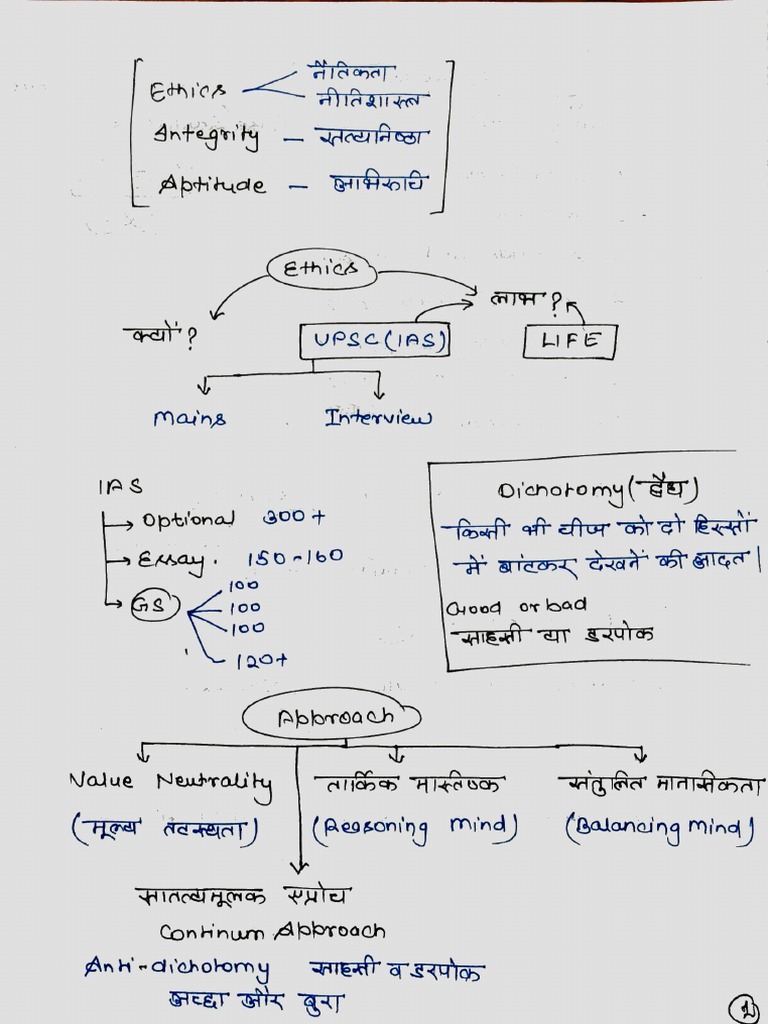 Ethics
नैतिकता
नीतिशास्त्र
Integrity – सत्यनिष्ठा
Aptitude – अभिरुचि
Ethics
क्यों?
लाभ?
UPSC (IAS)
LIFE
Mains
Interview
IAS
Optional 300+
Essay. 150-160
GS
100
100
100
120+
Dichotomy (द्वैध)
किसी भी चीज को दो हिस्सों
में बांटकर देखने की आदत।
Good or bad
साहसी या डरपोक
Approach
Value Neutrality
(मूल्य तटस्थता)
तार्किक मास्तिष्क
(Reasoning mind)
संतुलित मानसिकता
(Balancing mind)
सातत्यमूलक एप्रोच
Continum Approach
Anti-dichotomy साहसी व डरपोक
अच्छा और बुरा